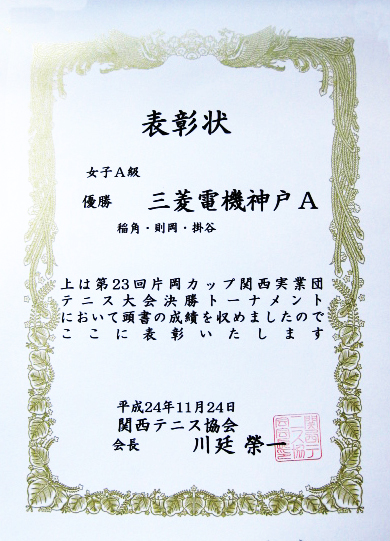 表彰状
女子A級
優勝 三菱電機神戸A
稲角・則岡・掛谷
上は第23回片岡カップ関西実業団
テニス大会決勝トーナメント
において頭書の成績を収めましたので
ここに表彰いたします
平成24年11月24日
関西テニス協会
会長 川廷 榮一